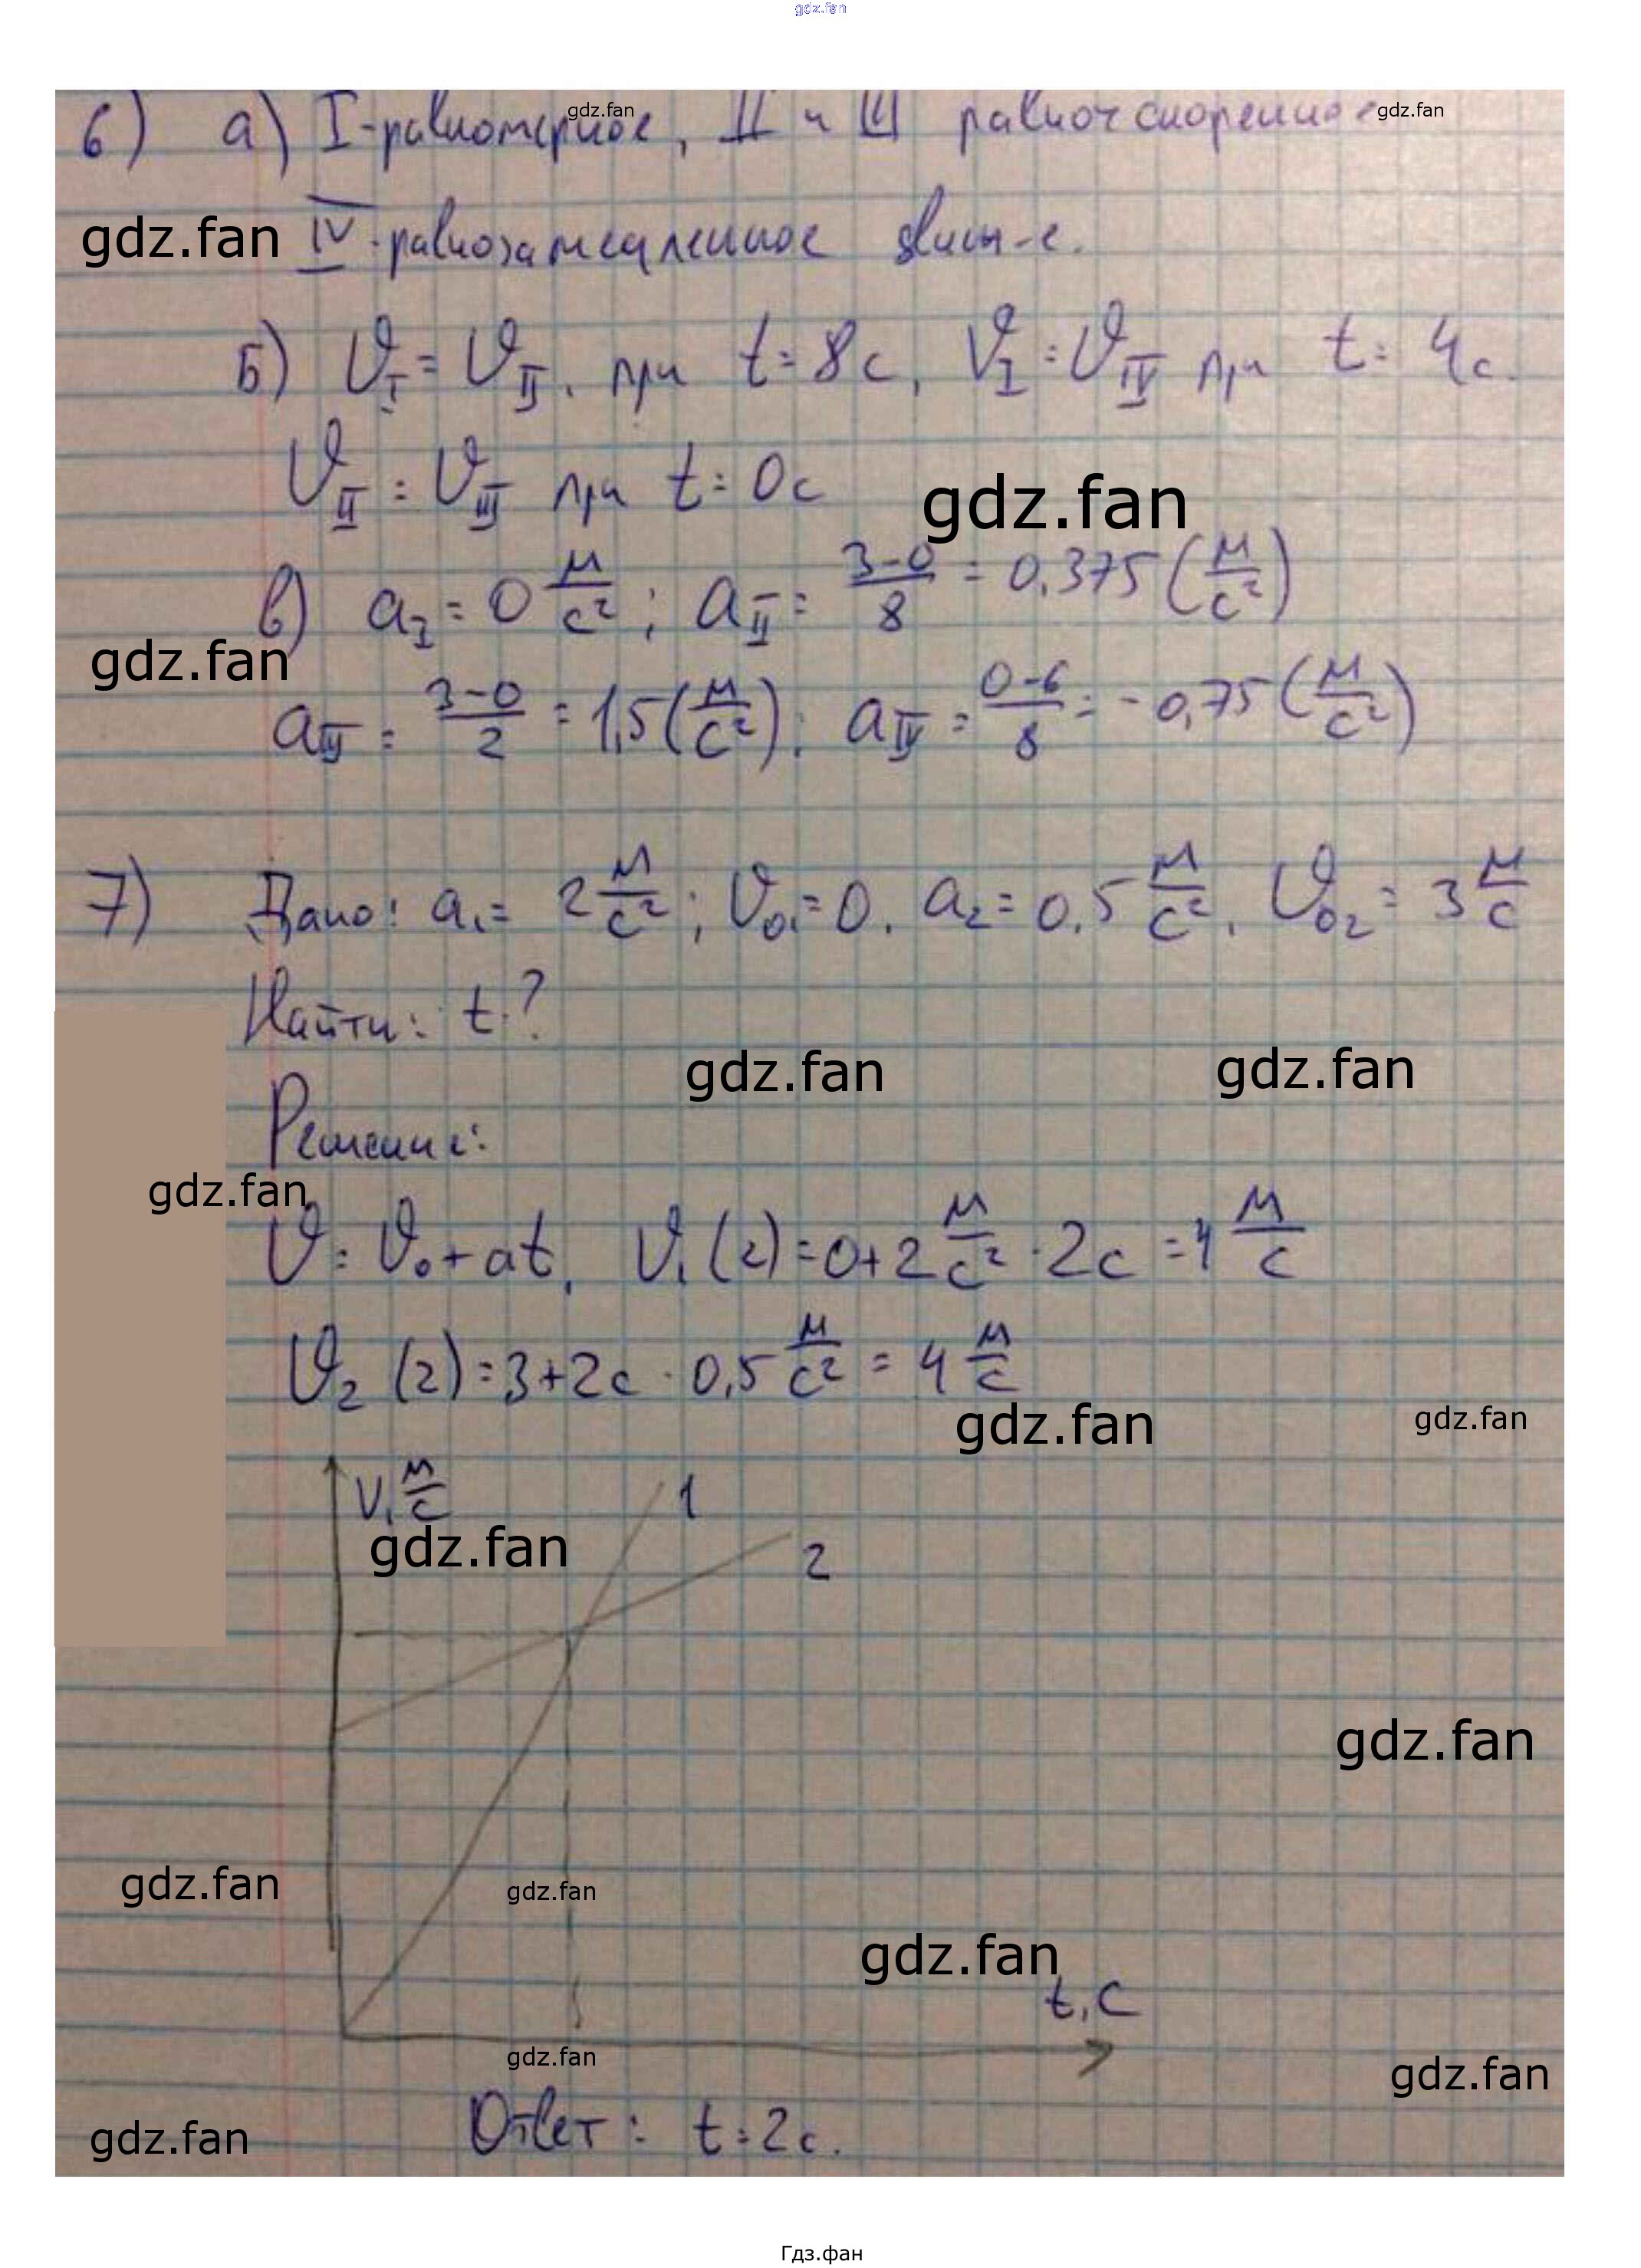 gdz.fan
6) а) I-равномерное, II и III равноускоренное
gdz.fan
gdz.fan
gdz.fan
IV-равнозамедленное движ-е.
Б) υ_I = υ_II, при t = 8с, υ_I = υ_IV при t = 4с.
υ_II = υ_III при t = 0с
gdz.fan
в) a_I = 0 м/с²; a_II = (3-0)/8 = 0,375 (м/с²)
gdz.fan
a_III = (3-0)/2 = 1,5 (м/с²); a_IV = (0-6)/8 = -0,75 (м/с²)
7) Дано: a₁ = 2 м/с²; υ₀₁ = 0, a₂ = 0,5 м/с², υ₀₂ = 3 м/с
Найти: t-?
gdz.fan
gdz.fan
Решение:
gdz.fan
υ = υ₀ + at, υ₁(2) = 0 + 2 м/с² · 2с = 4 м/с
υ₂(2) = 3 + 2с · 0,5 м/с² = 4 м/с
gdz.fan
gdz.fan
V, м/с
1
gdz.fan
2
gdz.fan
gdz.fan
gdz.fan
gdz.fan
t, с
gdz.fan
gdz.fan
Ответ: t = 2с.
gdz.fan
Гдз.фан